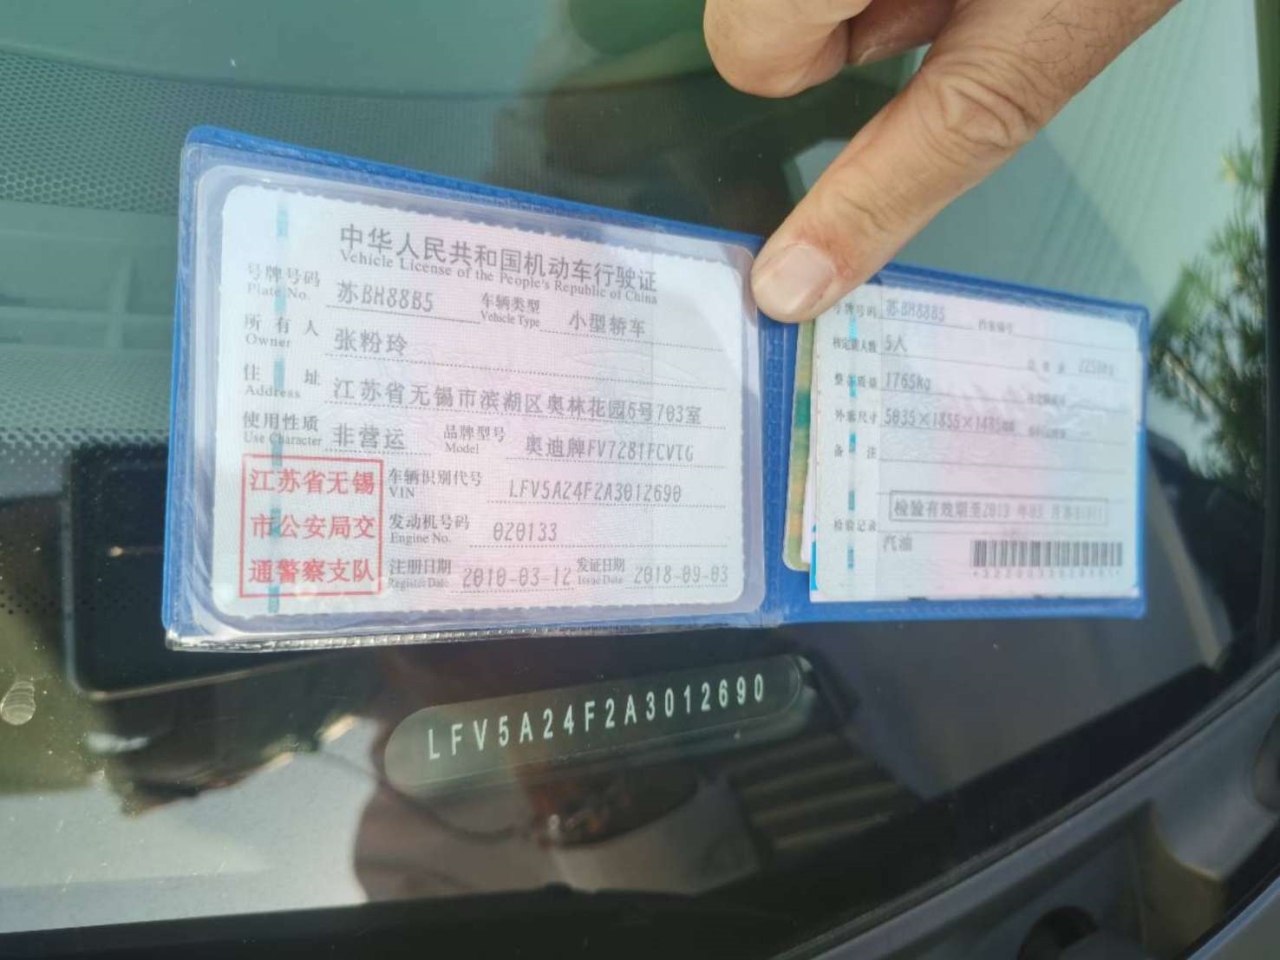 中华人民共和国机动车行驶证
Vehicle License of the People's Republic of China
号牌号码 苏BH88B5 车辆类型 小型轿车
Plate No. Vehicle Type
所有人 张粉玲
Owner
住址 江苏省无锡市滨湖区奥林花园6号703室
Address
使用性质 非营运 品牌型号 奥迪牌FV7281FCVTG
Use Character Model
江苏省无锡
市公安局交
通警察支队
车辆识别代号 LFV5A24F2A3012690
VIN
发动机号码 020133
Engine No.
注册日期 2010-03-12 发证日期 2018-09-03
Register Date Issue Date
号牌号码 苏BH88B5 档案编号
核定载人数 5人
整备质量 1765kg
外廓尺寸 5035×1855×1485mm
备注
检验有效期至2019年03月
检验记录
汽油
LFV5A24F2A3012690